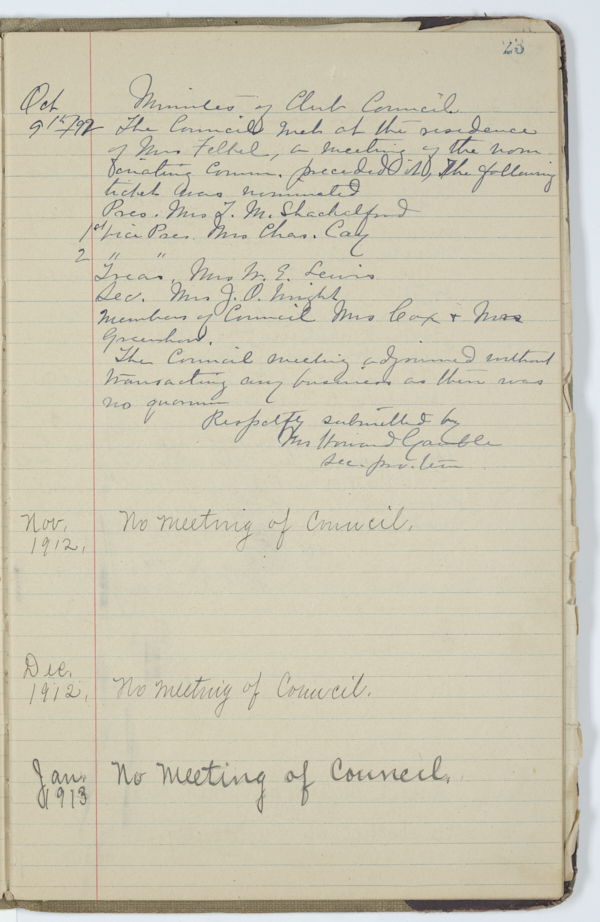 23
Oct Minutes of Club Council.
9th/12 The Council met at the residence
of Mrs Felkel, a meeting of the nom-
inating Comm. preceded it, The following
ticket was nominated
Pres. Mrs T. M. Shackelford
1st Vice Pres. Mrs Chas. Cay
2 " "
Treas. Mrs W. E. Lewis
Sec. Mrs J. O. Wright
Members of Council Mrs Cox + Mrs
Greenhow.
The Council meeting adjourned without
transacting any business as there was
no quorum
Respctfy submitted by
Mrs Howard Gamble
Sec. pro. tem
Nov. No meeting of Council.
1912.
Dec.
1912. No meeting of Council.
Jan. No Meeting of Council.
1913